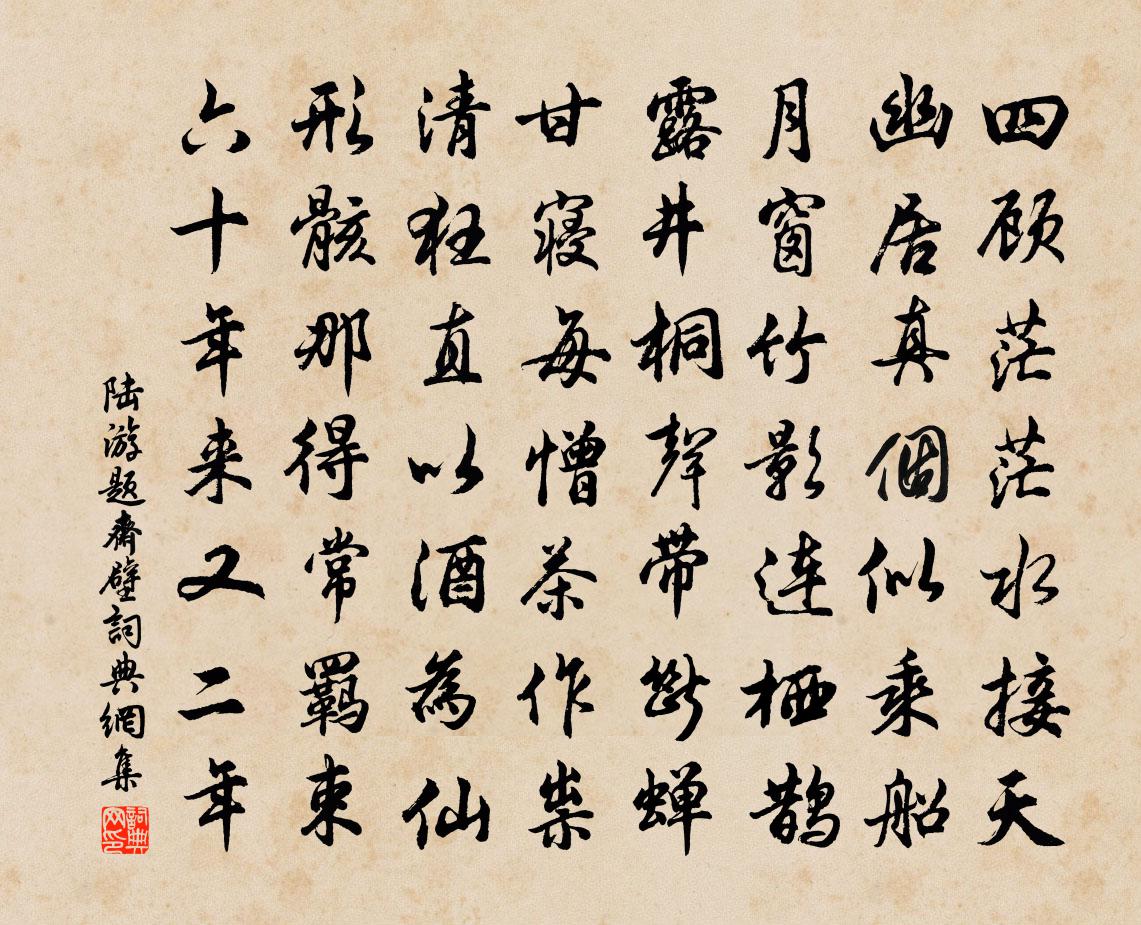 四顾茫茫水接天
幽居真個似乘船
月窗竹影連栖鵲
露井桐聲帶断蝉
甘寝每憎茶作祟
清狂直以酒為仙
形骸那得常羈束
六十年来又二年
陆游题齋壁詞典網集
詞典网印